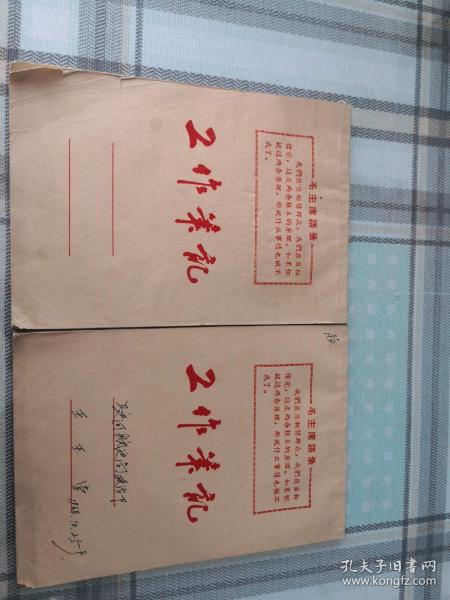 毛主席語录
我們应当相信群众，我們应当相
信党，这是两条根本的原理。如果怀
疑这两条原理，那就什么事情也做不
成了。
工作笔记
毛主席語录
我們应当相信群众，我們应当相
信党，这是两条根本的原理。如果怀
疑这两条原理，那就什么事情也做不
成了。
工作笔记
1968.10.25
孔夫子旧书网
www.kongfz.com